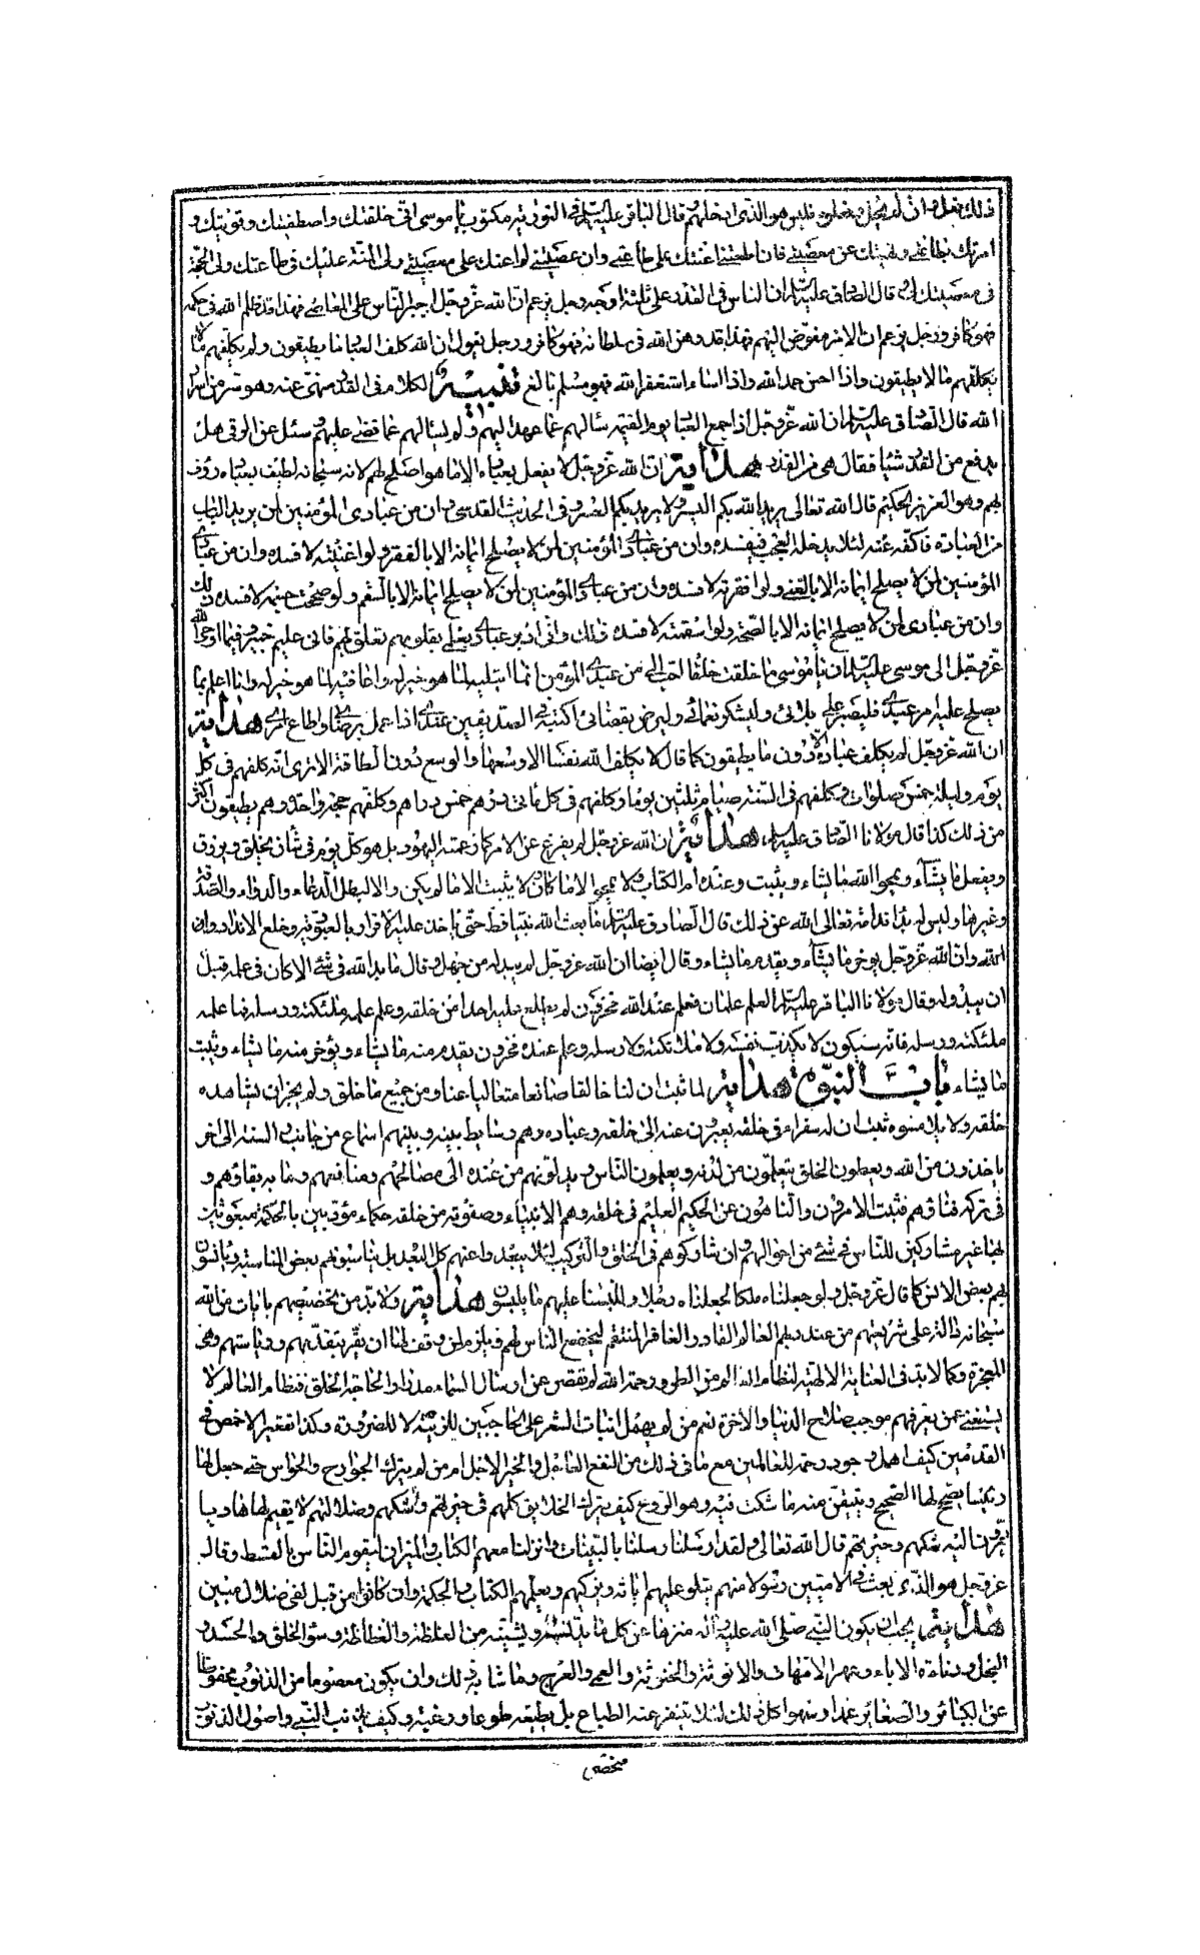 ذلك بفعل وان لم يجعل بفعله فليس هو الذى ادخلهم قال الباقر عليه السلم فى التورية مكتوب يا موسى انى خلقتك واصطفيتك وقويتك و
امرتك بطاعتى ونهيتك عن معصيتى فان اطعتنى اعنتك على طاعتى وان عصيتنى لم اعنك على معصيتى ولى المنة عليك فى طاعتك ولى الحجة
فى معصيتك لى قال الصادق عليه السلم ان الناس فى القدر على ثلثة اوجه رجل يزعم ان الله عز وجل اجبر الناس على المعاصى فهذا قد ظلم الله فى حكمه
فهو كافر ورجل يزعم ان الامر مفوض اليهم فهذا قد وهن الله فى سلطانه فهو كافر ورجل يقول ان الله كلف العباد ما يطيقون ولم يكلفهم مالا
يكلفهم ما لا يطيقون واذا احسن حمد الله واذا اساء استغفر الله فهو مسلم بالغ تنبيه الكلام فى القدر منهى عنه وهو سر من اسرار
الله قال الصادق عليه السلم ان الله عز وجل اذا جمع العباد يوم القيمة سألهم عما عهد اليهم ولم يسألهم عما قضى عليهم وسئل عن الرقى هل
يدفع من القدر شيئا فقال هى من القدر هداية ان الله عز وجل لا يفعل بعباده الا ما هو اصلح لهم لانه سبحانه لطيف بعباده رؤف
بهم وهو العزيز الحكيم قال الله تعالى يريد الله بكم اليسر ولا يريد بكم العسر وفى الحديث القدسى وان من عبادى المؤمنين لمن يريد الباب
من العبادة فاكفه عنه لئلا يدخله العجب فيفسده وان من عبادى المؤمنين لمن لا يصلح ايمانه الا بالفقر ولو اغنيته لافسده وان من عبادى
المؤمنين لمن لا يصلح ايمانه الا بالغنى ولو افقرته لافسده وان من عبادى المؤمنين لمن لا يصلح ايمانه الا بالسقم ولو صححت جسمه لافسده ذلك
وان من عبادى لمن لا يصلح ايمانه الا بالصحة ولو اسقمته لافسده ذلك وانى ادبر عبادى بعلمى بقلوبهم فانى عليم خبير وفيما اوحى الله
عز وجل الى موسى عليه السلم ان يا موسى ما خلقت خلقا احب الى من عبدى المؤمن انما ابتليه لما هو خير له واعافيه لما هو خير له وانا اعلم بما
يصلح عليه امر عبدى فليصبر على بلائى وليشكر نعمائى وليرض بقضائى اكتبه فى الصديقين عندى اذا عمل برضائى واطاع امرى هداية
ان الله عز وجل لم يكلف عباده الا دون ما يطيقون كما قال لا يكلف الله نفسا الا وسعها والوسع دون الطاقة الا ترى انه كلفهم فى كل
يوم وليلة خمس صلوات وكلفهم فى السنة صيام ثلثين يوما وكلفهم فى كل مأتى درهم خمس دراهم وكلفهم حجة واحدة وهم يطيقون اكثر
من ذلك كذا قال مولانا الصادق عليه السلم هداية ان الله عز وجل لم يفرغ عن الامر كما زعمته اليهود بل هو كل يوم فى شأن يخلق ويرزق
ويفعل ما يشاء ويمحوا الله ما يشاء ويثبت وعنده ام الكتاب ولا يمحوا الا ما كان ولا يثبت الا ما لم يكن والا لبطل الدعاء والدواء والصدقة
وغيرها وليس له بدا ندامة تعالى الله عن ذلك قال الصادق عليه السلم ما بعث الله نبيا قط حتى ياخذ عليه الاقرار بالعبودية وخلع الانداد وان
الله وان الله عز وجل يوخر ما يشاء ويقدم ما يشاء وقال ايضا ان الله عز وجل لم يبد له من جهل وقال ما بدا لله فى شئ الا كان فى علمه قبل
ان يبدو له وقال مولانا الباقر عليه السلم العلم علمان فعلم عند الله مخزون لم يطلع عليه احدا من خلقه وعلم علمه ملئكته ورسله فما علمه
ملئكته ورسله فانه سيكون لا يكذب نفسه ولا ملائكته ولا رسله وعلم عنده مخزون يقدم منه ما يشاء ويؤخر منه ما يشاء ويثبت
ما يشاء باب النبوة هداية لما ثبت ان لنا خالقا صانعا متعاليا عنا ومن جميع ما خلق ولم يجز ان يشاهده
خلقه ولا يلامسوه ثبت ان له سفراء فى خلقه يعبرون عنه الى خلقه وعباده وهم وسايط بينه وبينهم اسماع من جانب والسنة الى اخر
ياخذون من الله ويعطون الخلق يتعلمون من لدنه ويعلمون الناس ويدلونهم من عنده الى مصالحهم ومنافعهم وما به بقاؤهم و
فى تركه فناؤهم فثبت الامرون والناهون عن الحكيم العليم فى خلقه وهم الانبياء وصفوته من خلقه حكماء مؤدبين بالحكمة مبعوثين
بها غير مشاركين للناس فى شئ من احوالهم وان شاركوهم فى الخلق والتركيب لئلا يبعدوا عنهم كل البعد بل يناسبونهم بعض المناسبة ويأنسون
بهم بعض الانس كما قال عز وجل ولو جعلناه ملكا لجعلناه رجلا وللبسنا عليهم ما يلبسون هداية ولا بد من تخصيصهم بايات من الله
سبحانه دالة على شريعتهم من عند ربهم العالم القادر الغافر المنتقم ليخضع الناس لهم ويلزم لمن وقف لها ان يقر بتقدمهم ورياستهم وهى
المعجزة وكما لا بد فى العناية الالهية لنظام العالم من المطر ورحمة الله لم تقصر عن ارسال السماء مدرارا لحاجة الخلق فنظام العالم لا
يستغنى عمن يعرفهم موجب صلاح الدنيا والاخرة نعم من لم يهمل انبات الشعر على الحاجبين للزينة لا للضرورة وكذا تقعير الاخمص فى
القدمين كيف اهمل وجود رحمة للعالمين مع ما فى ذلك من النفع العاجل والخير الاجل ام من لم يترك الجوارح والحواس حتى جعل لها
رئيسا يصحح لها الصحيح ويتيقن منه ما شكت فيه وهو الروع كيف يترك الخلايق كلهم فى حيرتهم وشكهم وضلالتهم لا يقيم لها هاديا
يردون اليه شكهم وحيرتهم قال الله تعالى ولقد ارسلنا رسلنا بالبينات وانزلنا معهم الكتاب والميزان ليقوم الناس بالقسط وقال
عز وجل هو الذى بعث فى الاميين رسولا منهم يتلو عليهم اياته ويزكيهم ويعلمهم الكتاب والحكمة وان كانوا من قبل لفى ضلال مبين
هداية يجب ان يكون النبى صلى الله عليه واله منزها عن كل ما يدنسه ويشينه من الغلظة والفظاظة وسوء الخلق والحسد و
البخل ودناءة الاباء وعهر الامهات والانوثة والخنوثة والعمى والعرج وما شابه ذلك وان يكون معصوما من الذنوب محفوظا
عن الكبائر والصغائر عمدا وسهوا كل ذلك لئلا يتنفر عنه الطباع بل يطيعه طوعا ورغبة وكيف يذنب النبى واصول الذنوب
منحصرة